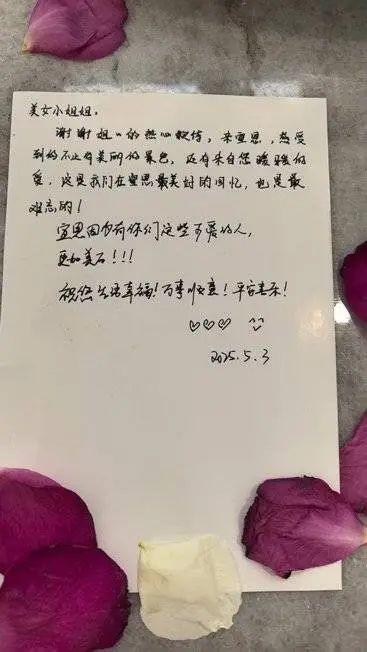 美女小姐姐，
谢谢姐姐的热心款待，来宣恩，感受
到的不止有美丽的景色，还有来自您暖暖的
爱，这是我们在宣恩最美好的回忆，也是最
难忘的！
宣恩因为有你们这些可爱的人，
更加美了！！！
祝您生活幸福！万事顺意！平安喜乐！
♡♡♡ ^^
2025.5.3